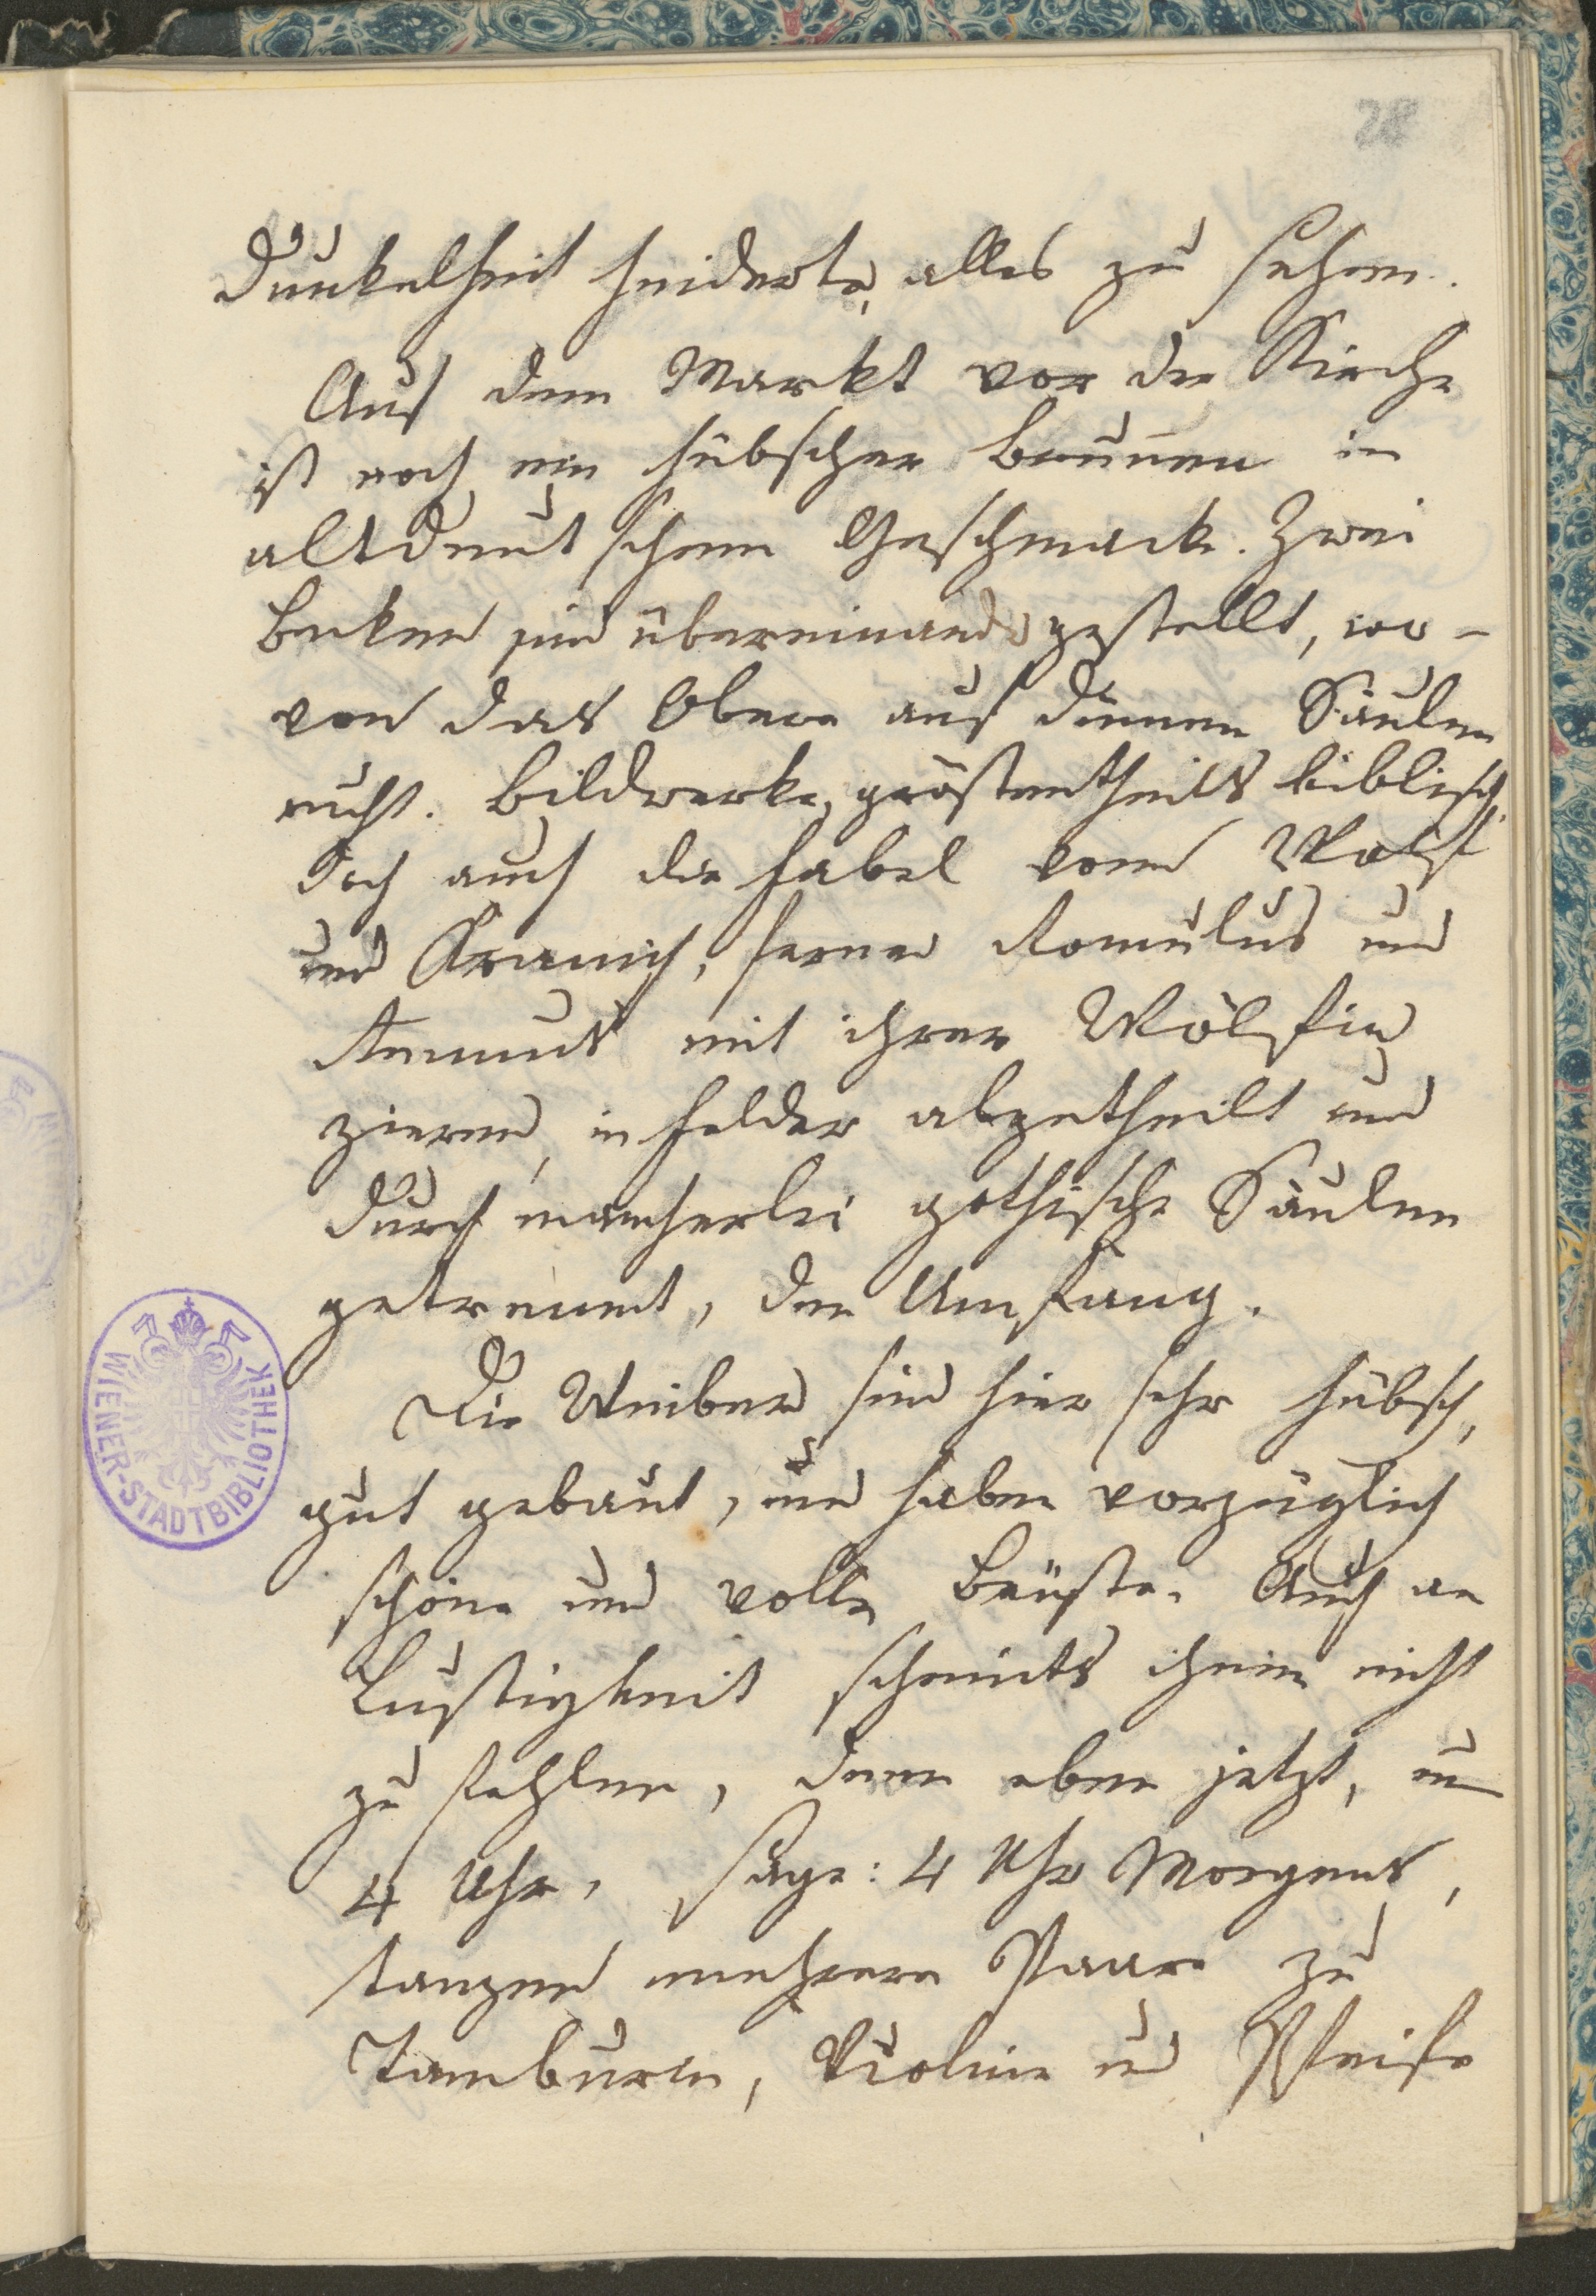 28
Dunkelheit hinderte, alles zu sehen.
Auf dem Markt vor der Kirche
ist noch ein hübscher Brunnen in
altdeutschem Geschmack. Zwei
Becken sind übereinander gestellt, wo-
von das Obere auf dünnen Säulen
ruht. Bildwerke, größtentheils biblisch,
doch auch die Fabel vom Wolf
und Kranich, ferner Romulus und
Remus mit ihrer Wölfin
zieren, in Felder abgetheilt und
durch mancherlei gothische Säulen
getrennt, den Umfang.
Die Weiber sind hier sehr hübsch,
gut gebaut, und haben vorzüglich
schöne und volle Brüste. Auch an
Lustigkeit scheints ihnen nicht
zu fehlen, denn eben jetzt, um
4 Uhr, sage: 4 Uhr Morgens,
tanzen mehrere Paare zu
Tamburin, Violine und Pfeife
WIENER-STADTBIBLIOTHEK